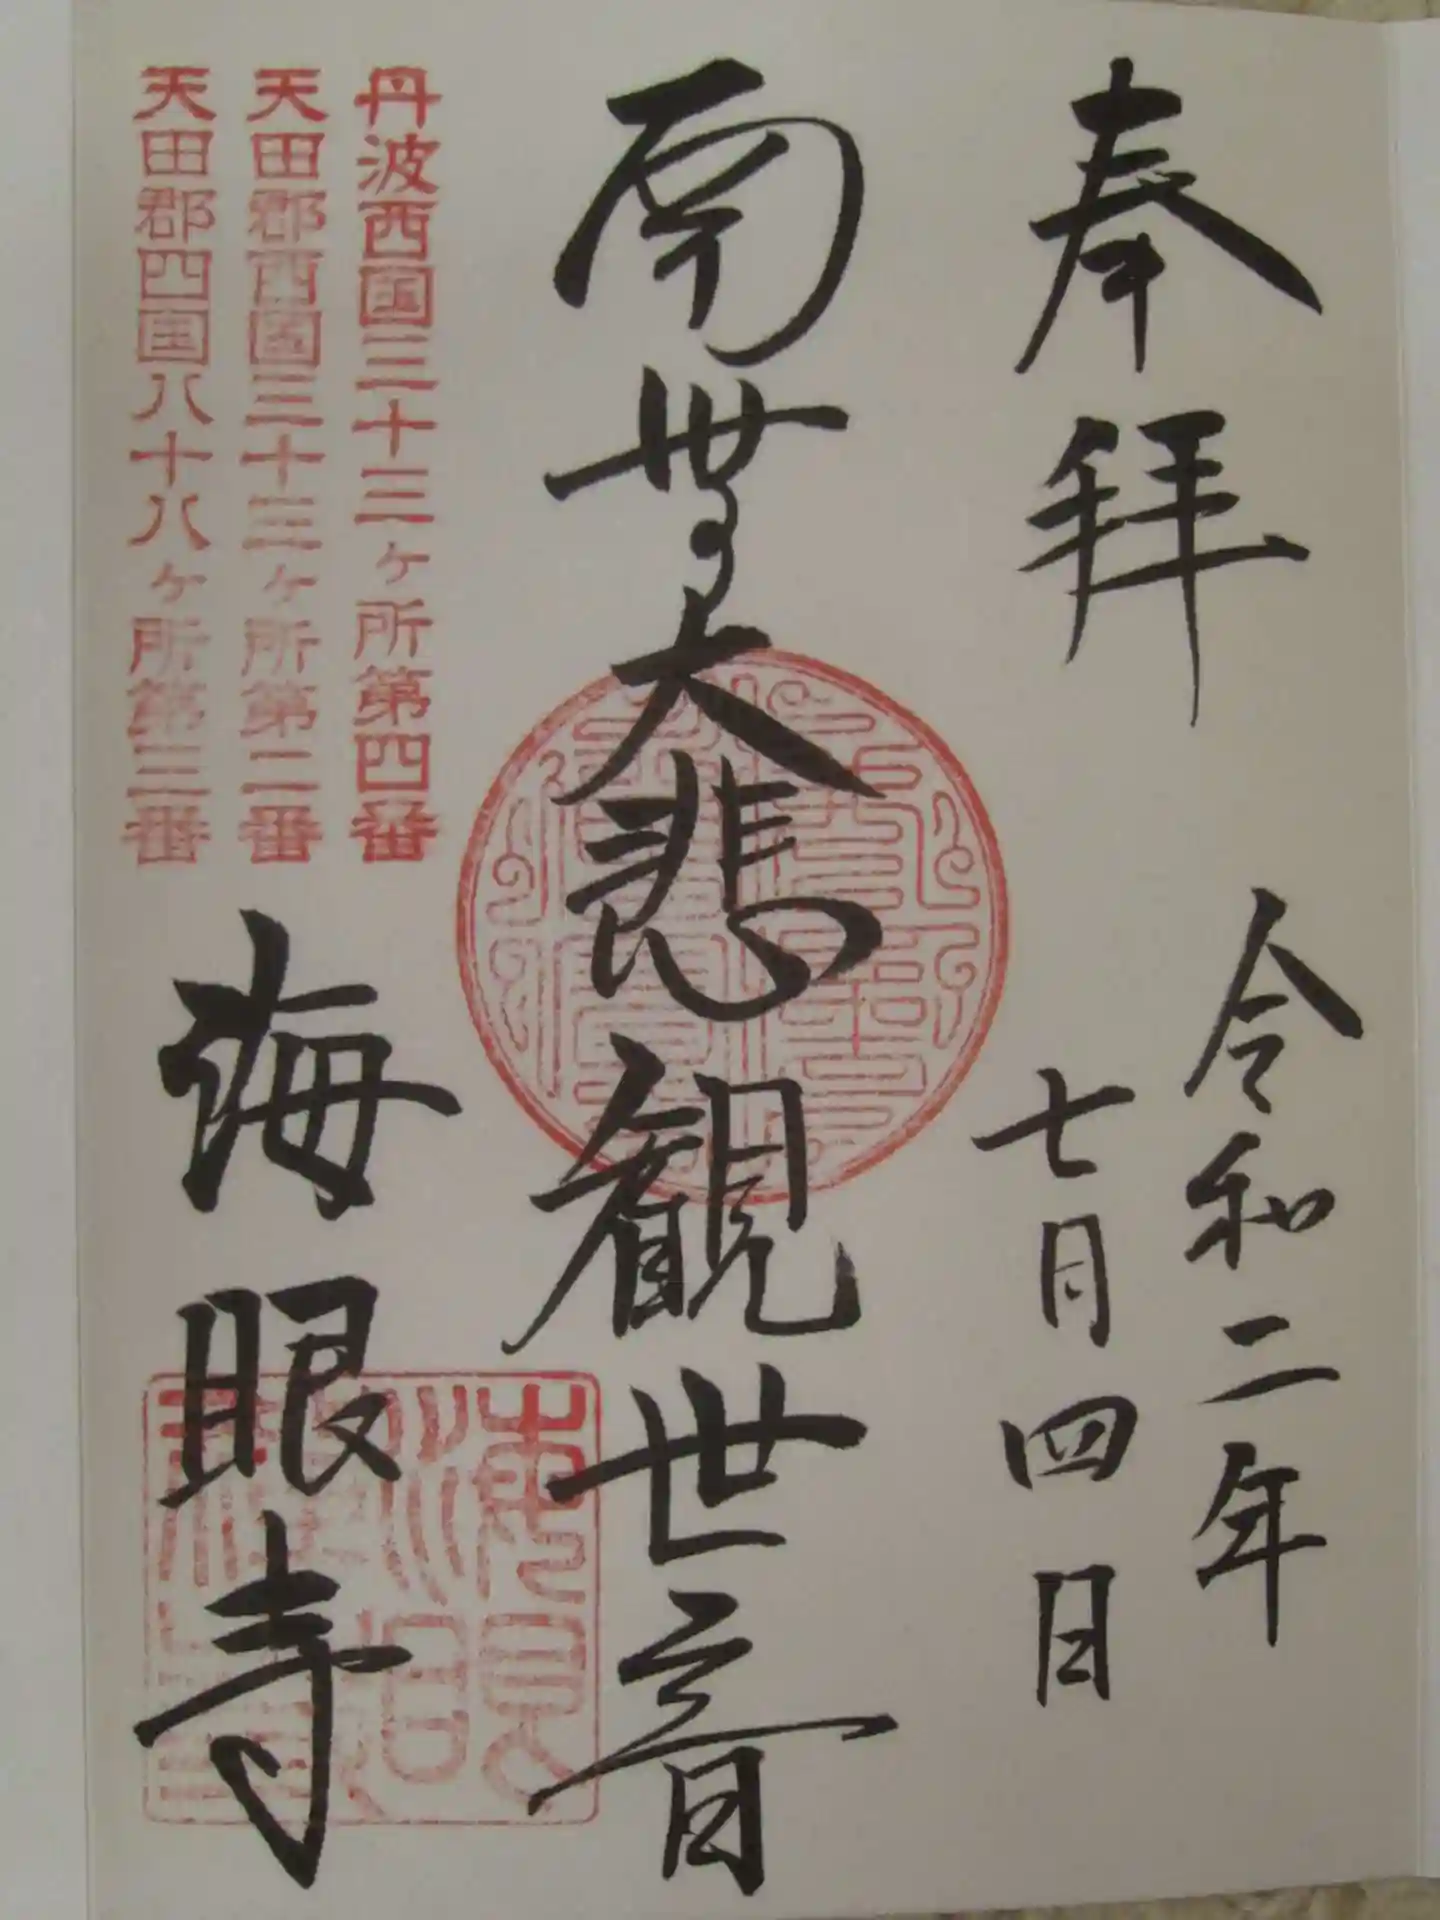 奉拝
令和二年
七月四日
南無大悲観世音
丹波西国三十三ヶ所第四番
天田郡西国三十三ヶ所第二番
天田郡四国八十八ヶ所第三番
海眼寺